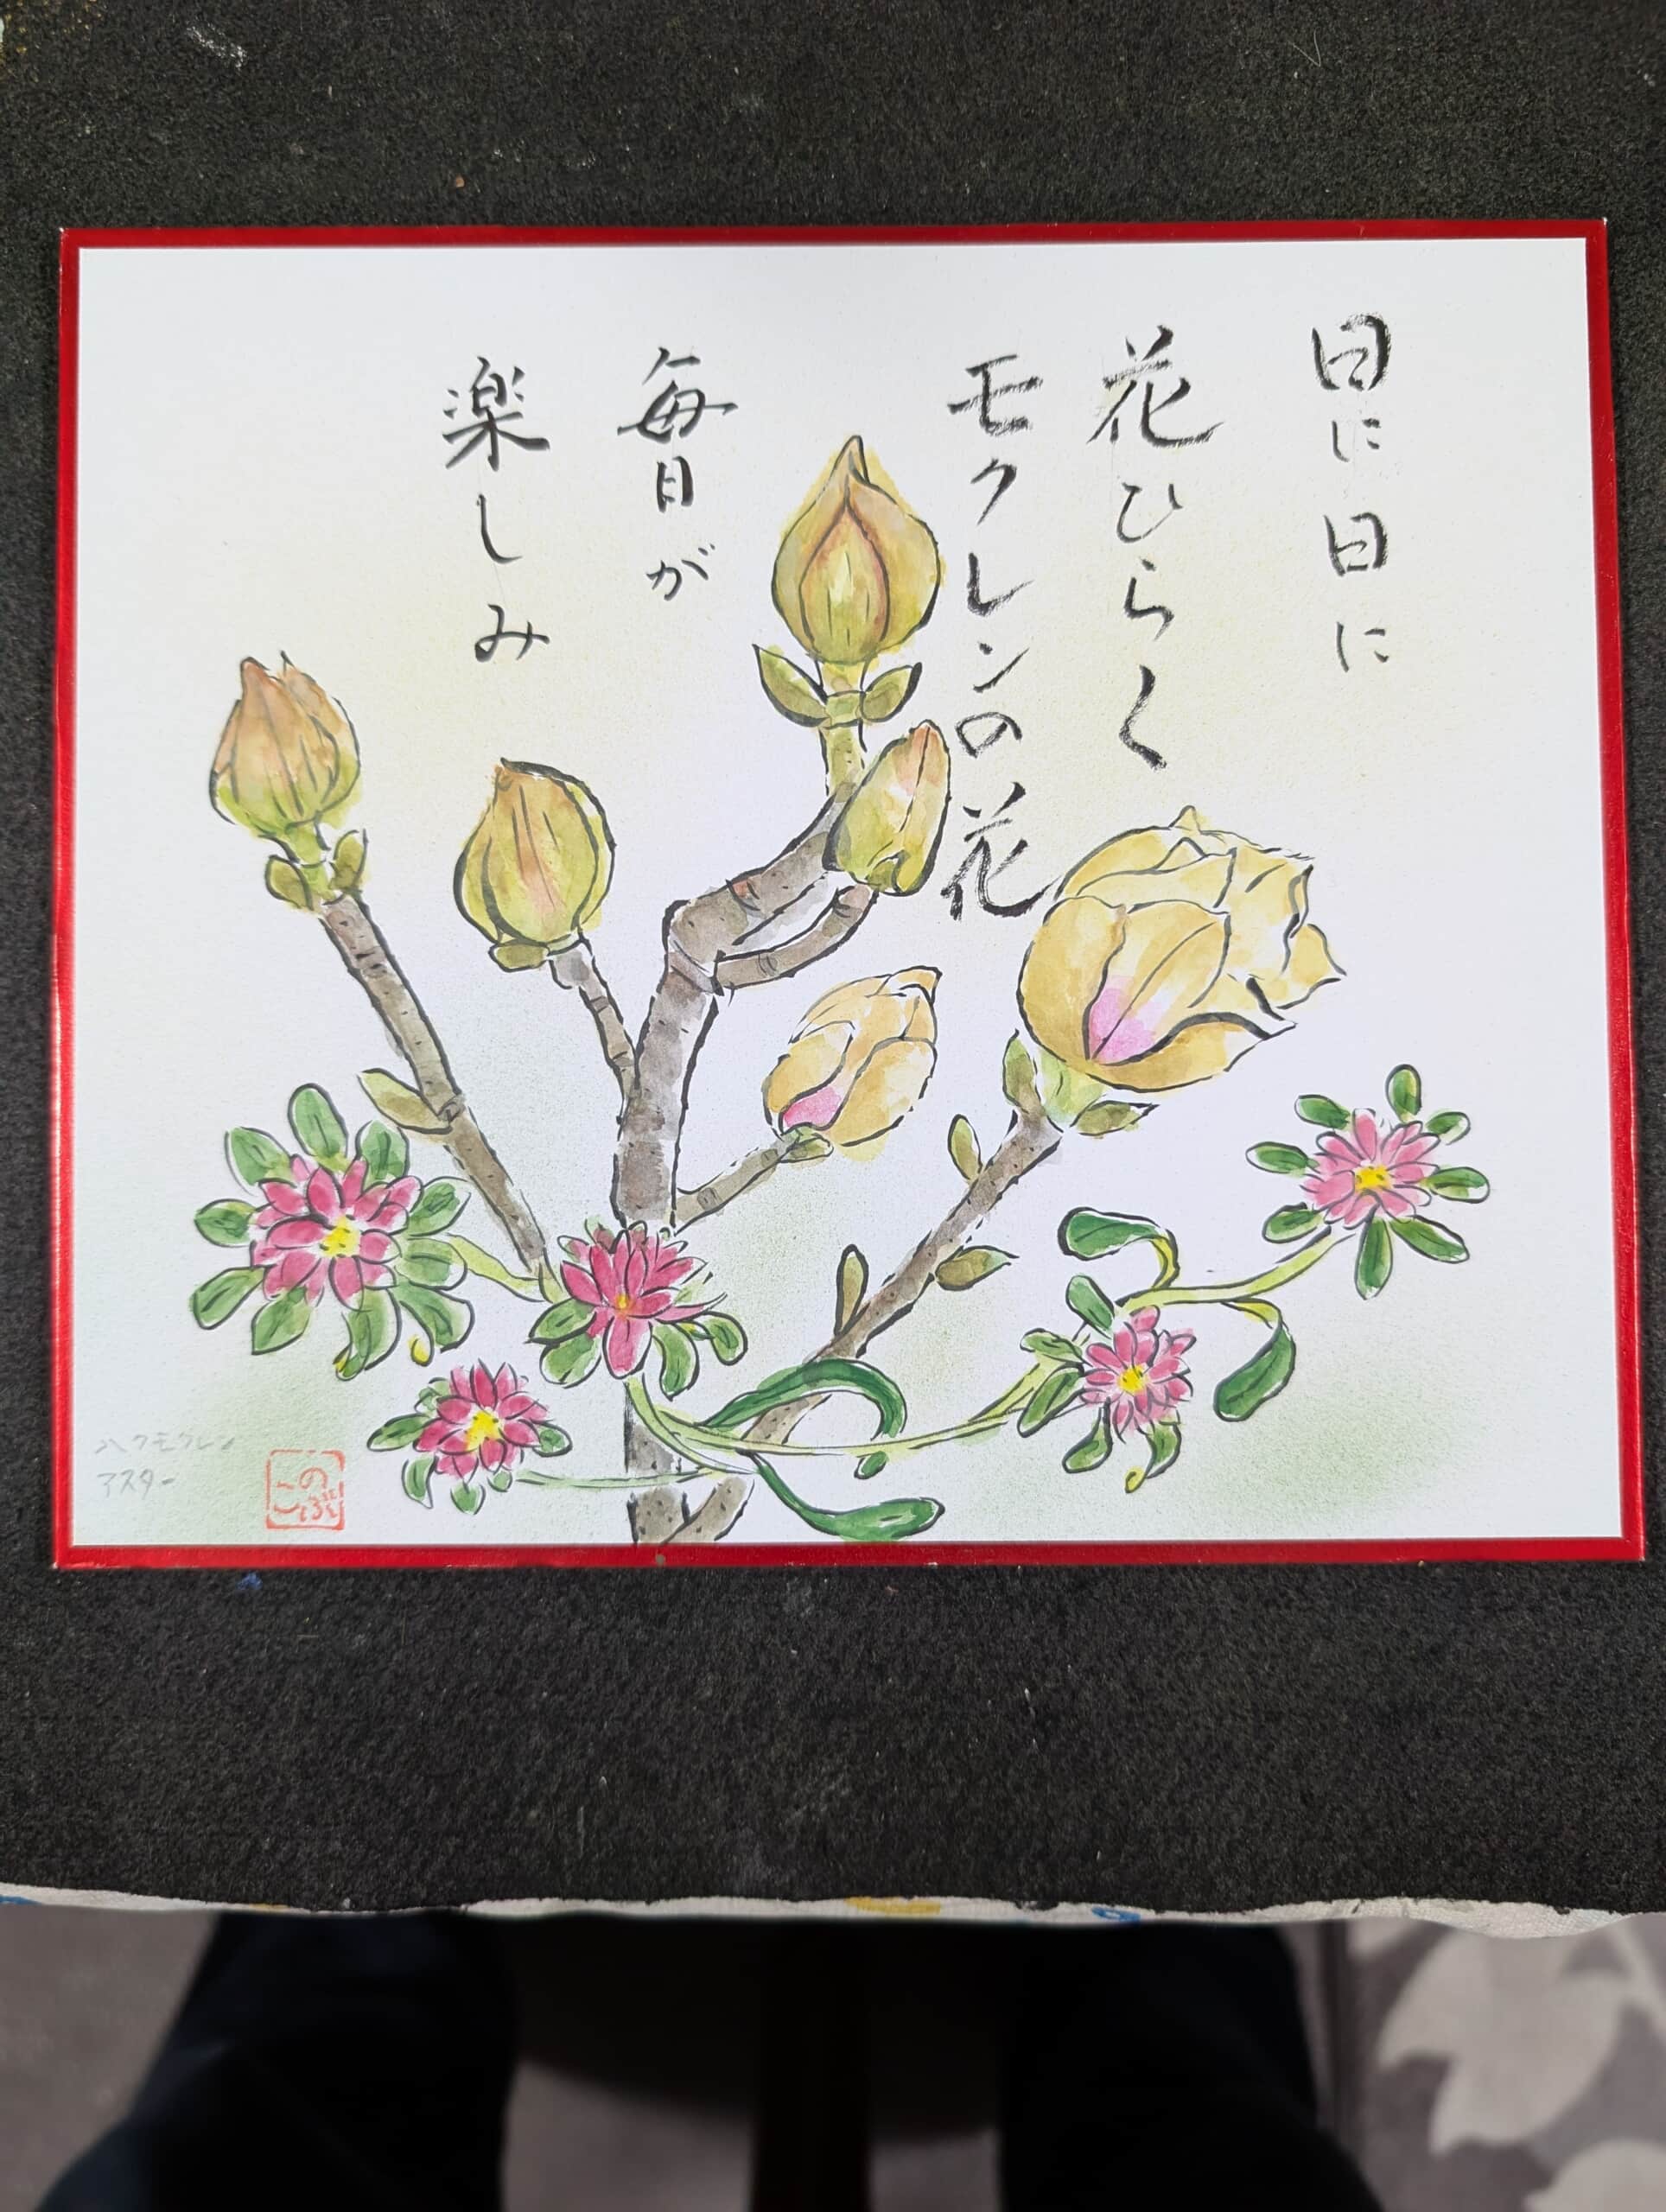 日に日に
花ひらく
モクレンの花
毎日が
楽しみ
ハクモクレン
アスター